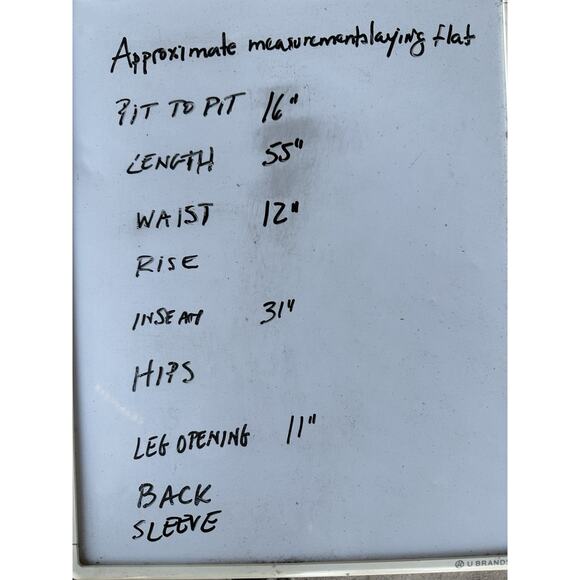 Approximate measurements laying flat
PIT TO PIT 16"
LENGTH 55"
WAIST 12"
RISE
INSEAM 31"
HIPS
LEG OPENING 11"
BACK
SLEEVE
U BRANDS